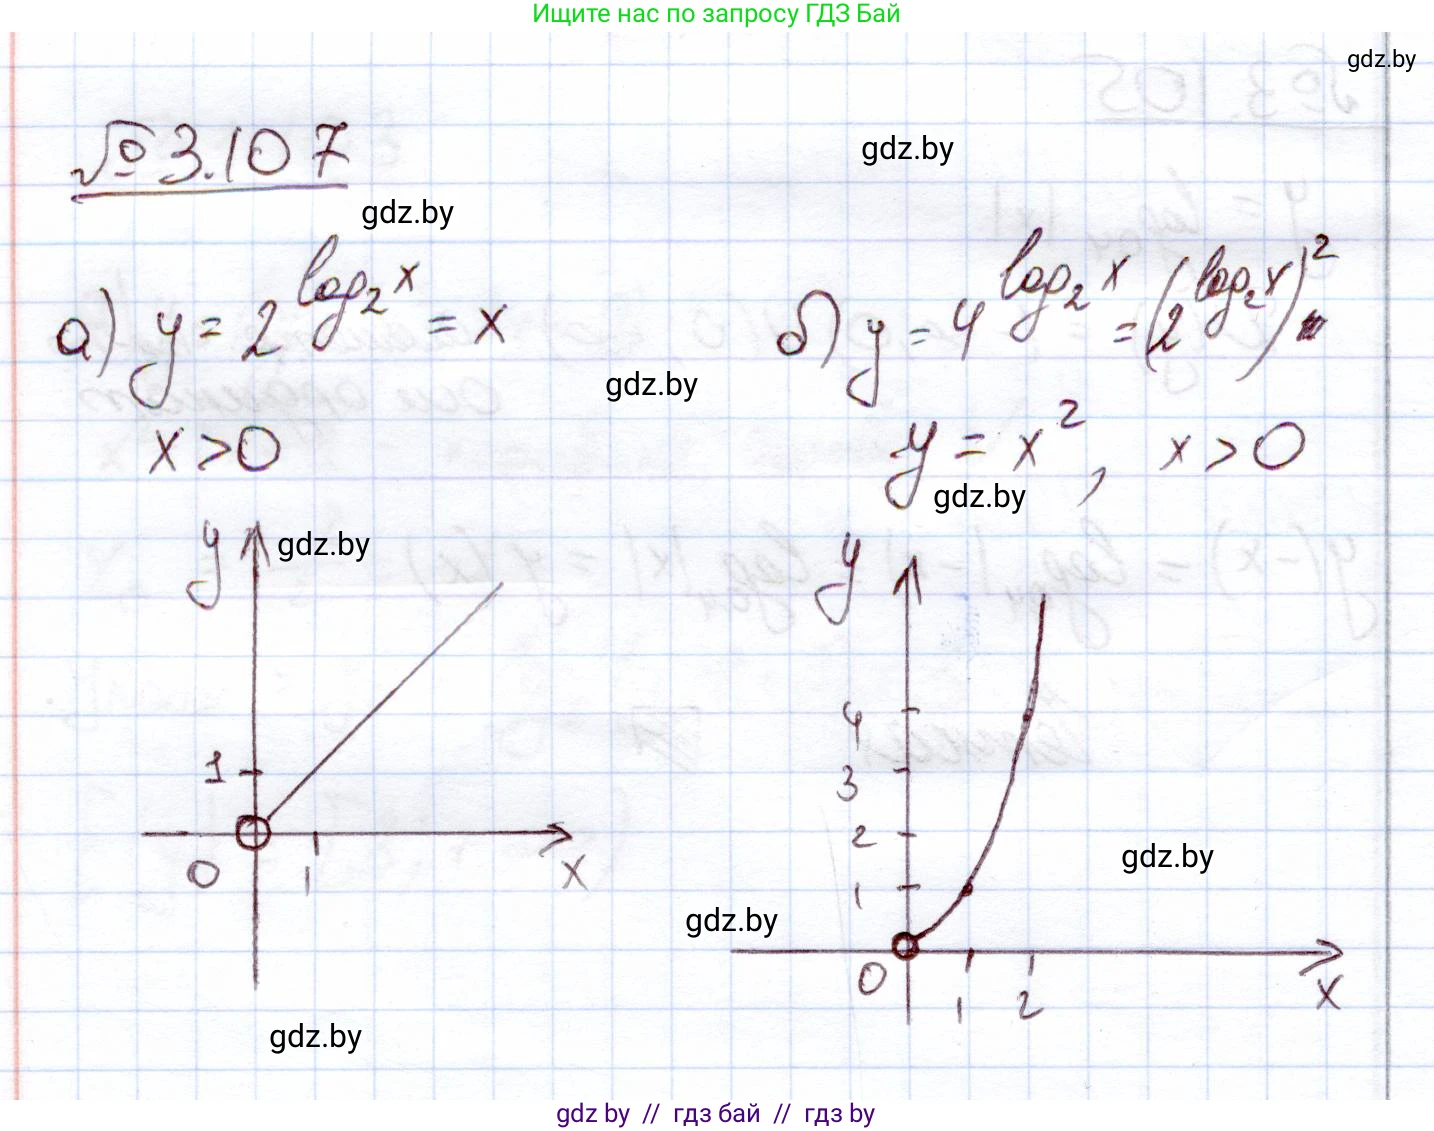 Ищите нас по запросу ГДЗ Бай
gdz.by
№3.107
gdz.by
gdz.by
а) y = 2^{log_2 x} = x
x > 0
б) y = 4^{log_2 x} = (2^{log_2 x})^2
y = x^2, x > 0
gdz.by
gdz.by
y
gdz.by
1
0
1
x
gdz.by
y
4
3
2
1
0
1
2
x
gdz.by
gdz.by
gdz by // гдз бай // гдз by